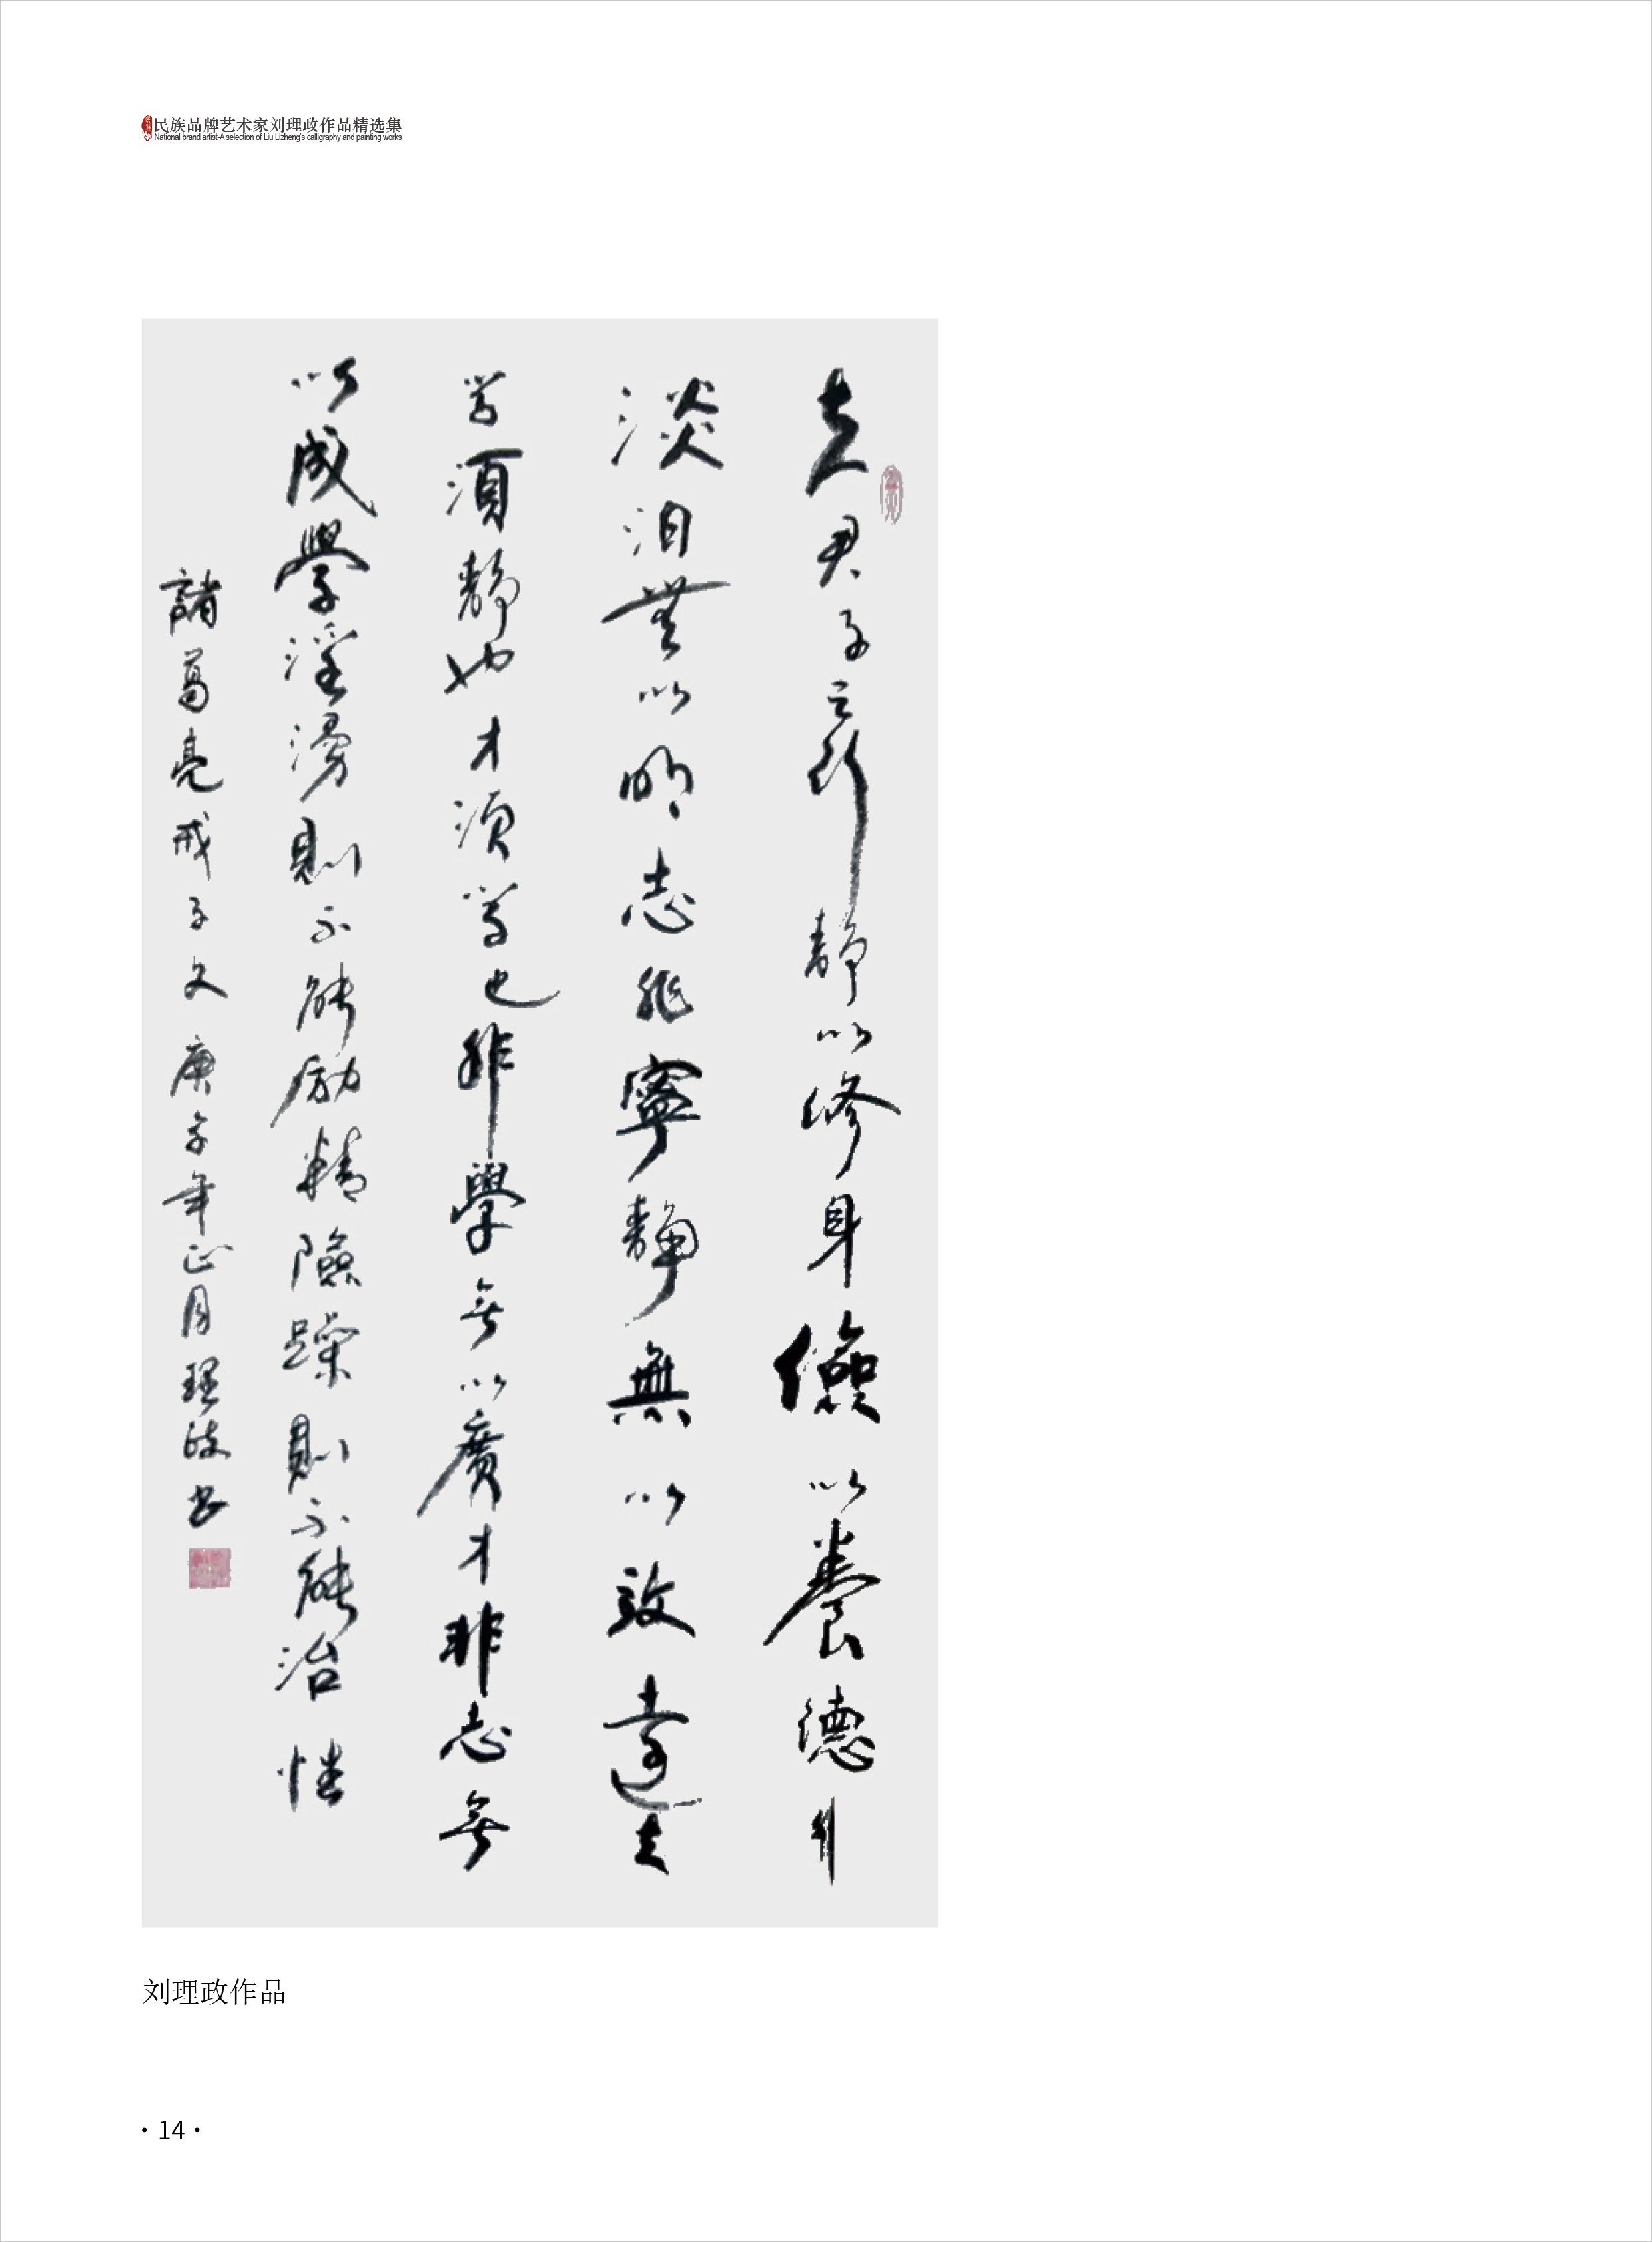 民族品牌艺术家刘理政作品精选集
National brand artist-A selection of Liu Lizheng's calligraphy and painting works
夫君子之行静以修身儉以養德非
淡泊無以明志非寧静無以致遠夫
学須静也才须学也非學无以廣才非志无
以成學淫漫則不能励精險躁則不能治性
諸葛亮戒子文庚子年正月理政书
刘理政作品
·14·